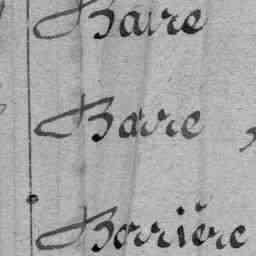 Baire
Barre,
Borrière